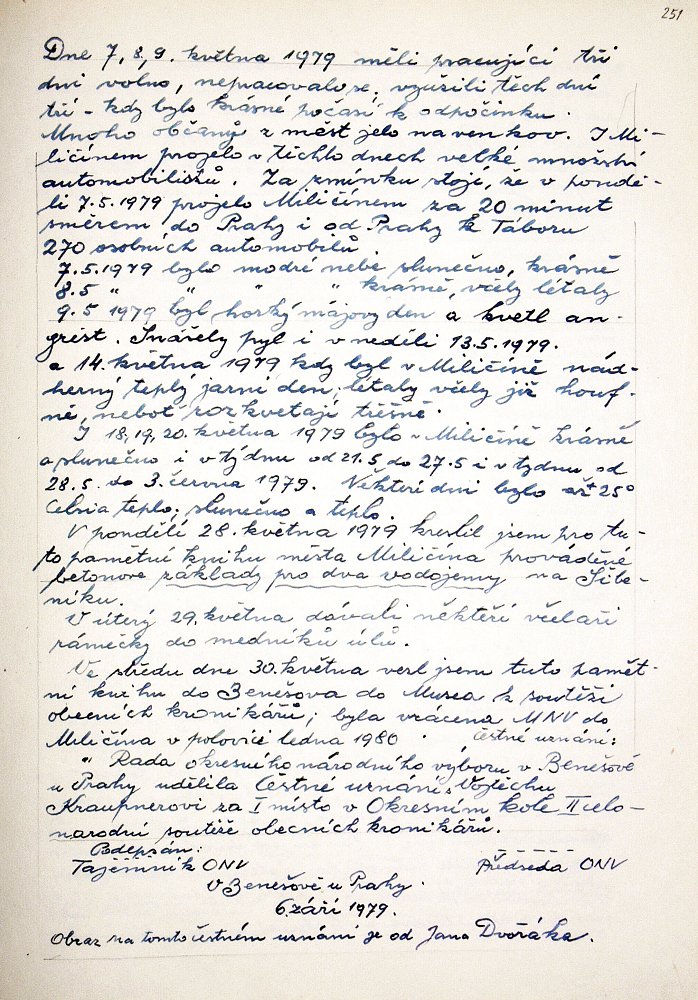 251
Dne 7, 8, 9. května 1979 měli pracující tři
dni volno, nepracovalo se, využili těch dní
tří - kdy bylo krásné počasí k odpočinku.
Mnoho občanů z měst jelo na venkov. I Mi-
ličínem projelo v těchto dnech velké množství
automobilistů. Za zmínku stojí, že v pondě-
lí 7.5.1979 projelo Miličínem za 20 minut
směrem do Prahy i od Prahy k Táboru
270 osobních automobilů.
7.5.1979 bylo modré nebe slunečno, krásně
8.5 " " " " krásně, včely létaly
9.5 1979 byl horký májový den a kvetl an-
grešt. Snášely pyl i v neděli 13.5.1979.
a 14. května 1979 kdy byl v Miličíně nád-
herný teplý jarní den, létaly včely již houf-
ně, neboť rozkvetají třešně.
I 18, 19, 20. května 1979 bylo v Miličíně krásně
a slunečno i v týdnu od 21.5 do 27.5 i v tydnu od
28.5. do 3. června 1979. Některé dni bylo až + 25°
Celsia teplo, slunečno a teplo.
V pondělí 28. května 1979 kreslil jsem pro tu-
to pamětní knihu města Miličína prováděné
betonové základy pro dva vodojemy na Šibe-
níku.
V úterý 29. května dávali někteří včelaři
rámečky do medníků úlů.
Ve středu dne 30. května vezl jsem tuto pamět-
ní knihu do Benešova do Musea k soutěži
obecních kronikářů; byla vrácena MNV do
Miličína v polovici ledna 1980. čestné uznání:
" Rada okresního národního výboru v Benešově
u Prahy udělila Čestné uznání Vojtěchu
Kraupnerovi za I místo v Okresním kole II celo-
národní soutěže obecních kronikářů.
Podepsán:
Tajemník ONV Předseda ONV
V Benešově u Prahy.
6. září 1979.
Obraz na tomto čestném uznání je od Jana Dvořáka.